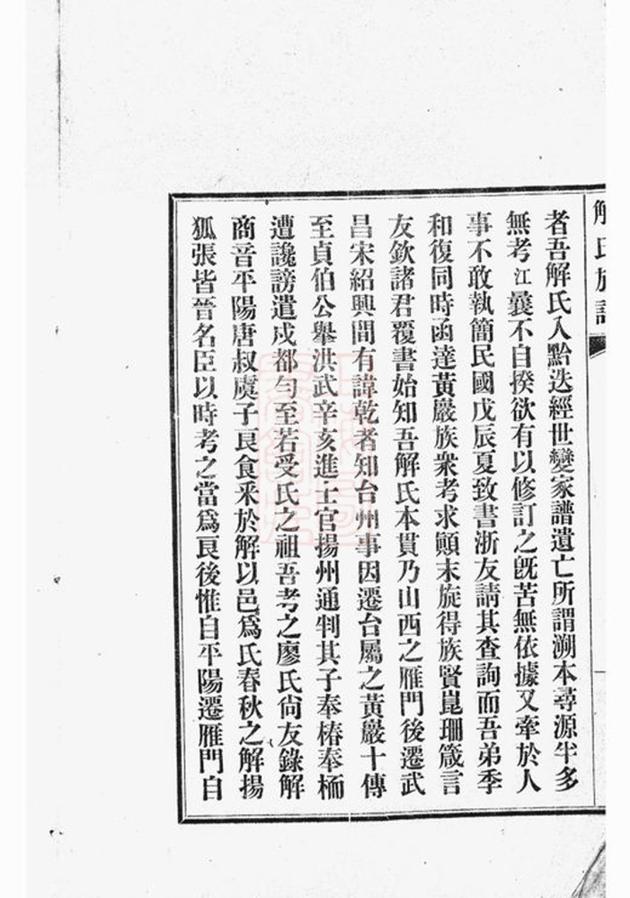 解氏族譜
者吾解氏入黔迭經世變家譜遺亡所謂溯本尋源半多
無考江曩不自揆欲有以修訂之旣苦無依據又牽於人
事不敢執簡民國戊辰夏致書浙友請其查詢而吾弟季
和復同時函達黃巖族衆考求顚末旋得族賢崑珊箴言
友欽諸君覆書始知吾解氏本貫乃山西之雁門後遷武
昌宋紹興間有諱乾者知台州事因遷台屬之黃巖十傳
至貞伯公舉洪武辛亥進士官揚州通判其子奉椿奉栭
遭讒謗遣戍都勻至若受氏之祖吾考之廖氏尙友錄解
商音平陽唐叔虞子良食釆於解以邑爲氏春秋之解揚
狐張皆晉名臣以時考之當爲良後惟自平陽遷雁門自